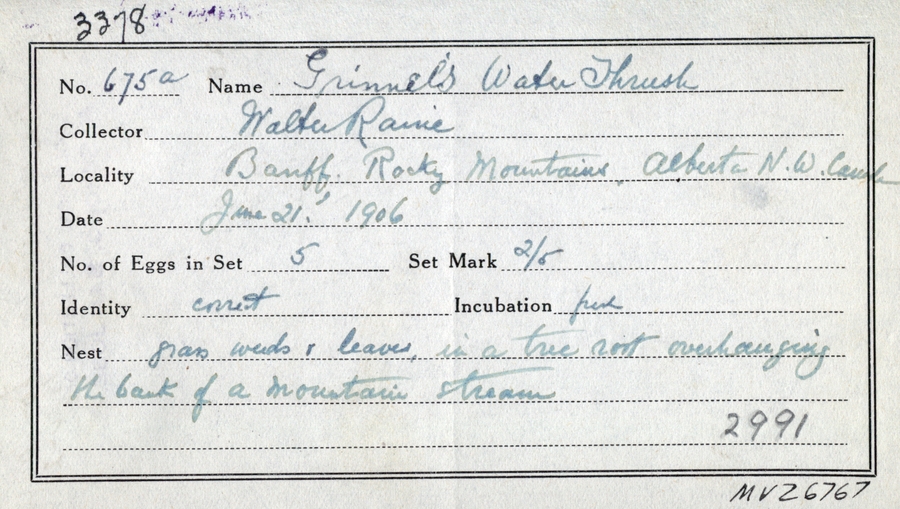 3378
No. 675a Name Grinnel's Water Thrush
Collector Walter Raine
Locality Banff. Rocky Mountains, Alberta N.W. Canada
Date June 21st 1906
No. of Eggs in Set 5 Set Mark 2/5
Identity correct Incubation fresh
Nest grass weeds & leaves, in a tree root overhanging
the bank of a mountain stream
2991
MVZ6767